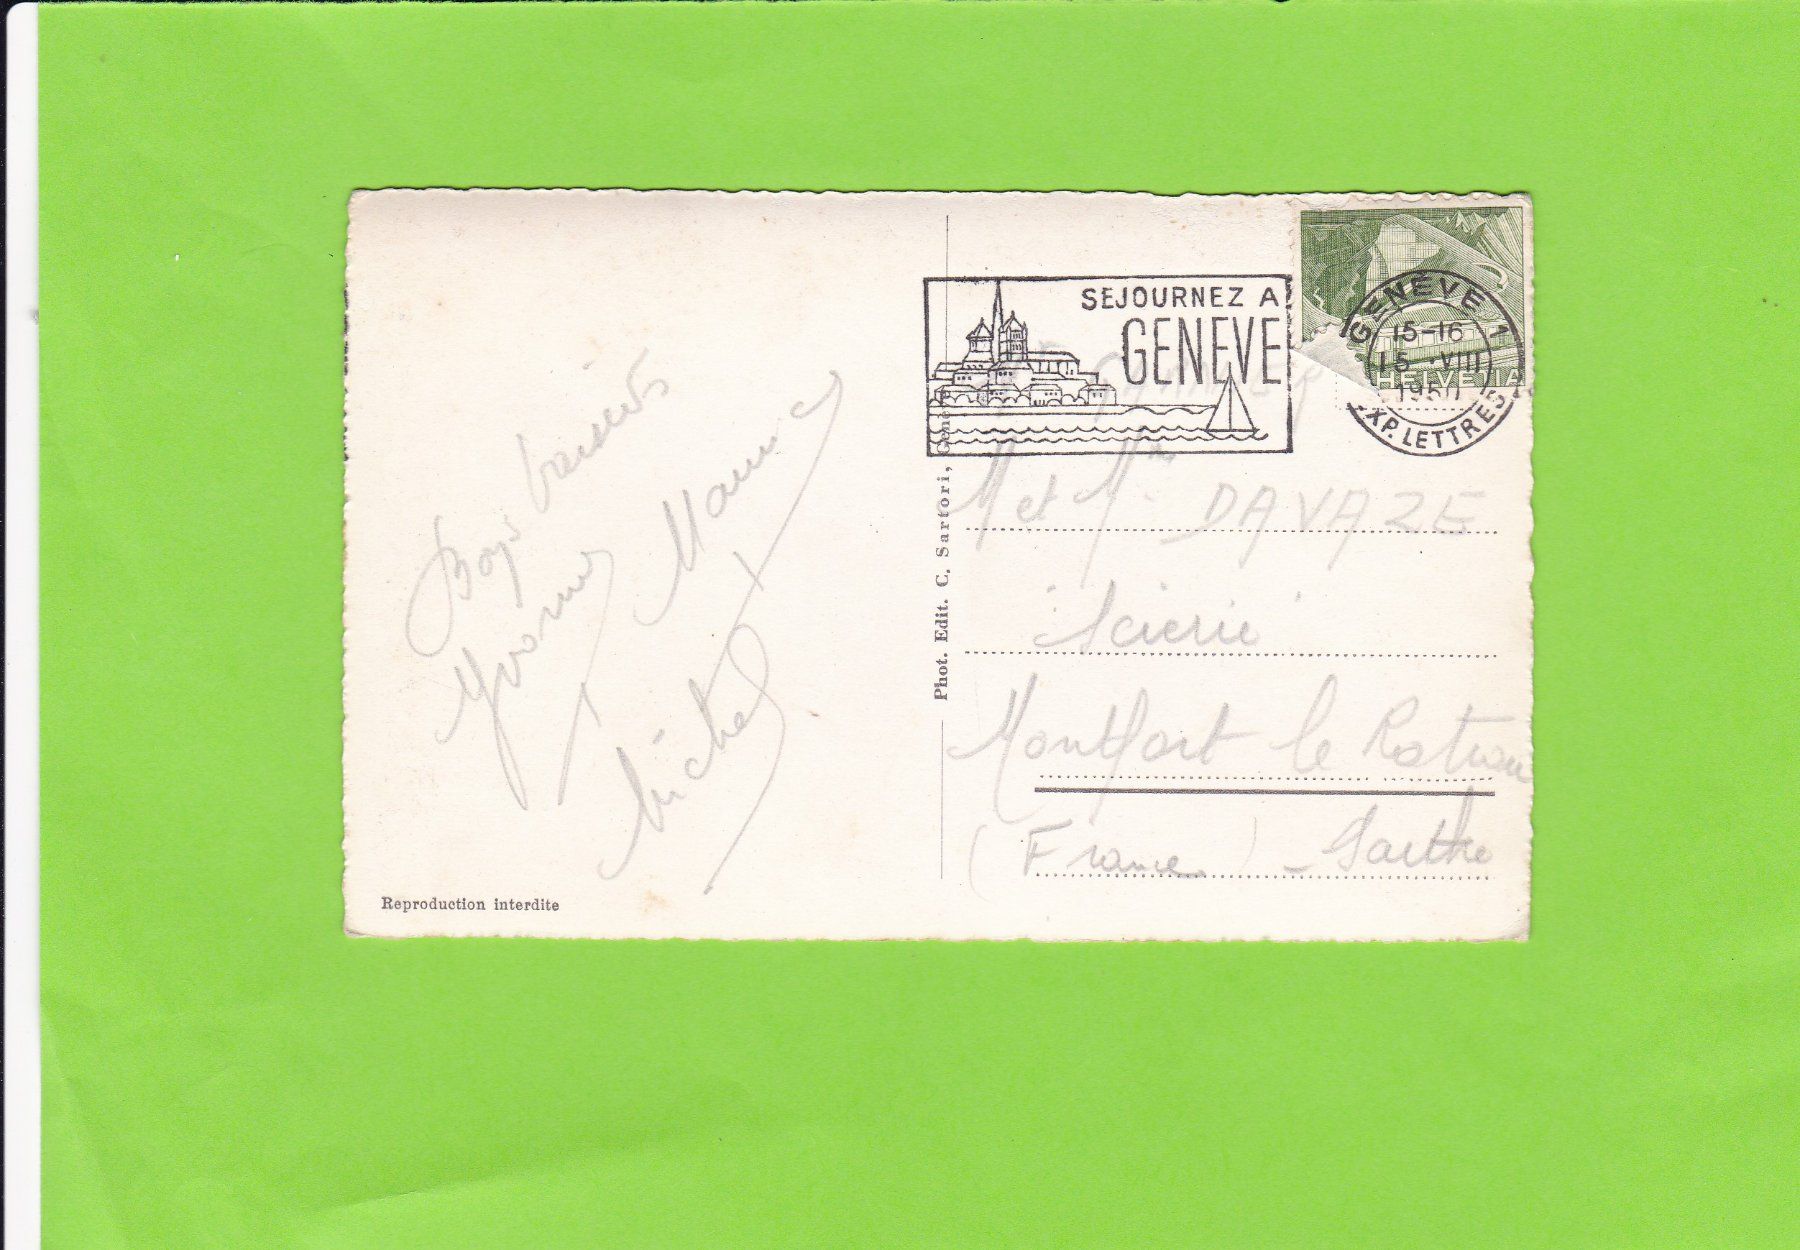 Bons baisers
Yvonne Maurice
Michel
Reproduction interdite
Phot. Edit. C. Sartori, Genève
SEJOURNEZ A
GENEVE
HELVETIA
GENÈVE 1
15-16
15.VIII
1950
EXP. LETTRES
M et Mme DAVAZE
Scierie
Montfort le Rotrou
(France) - Sarthe